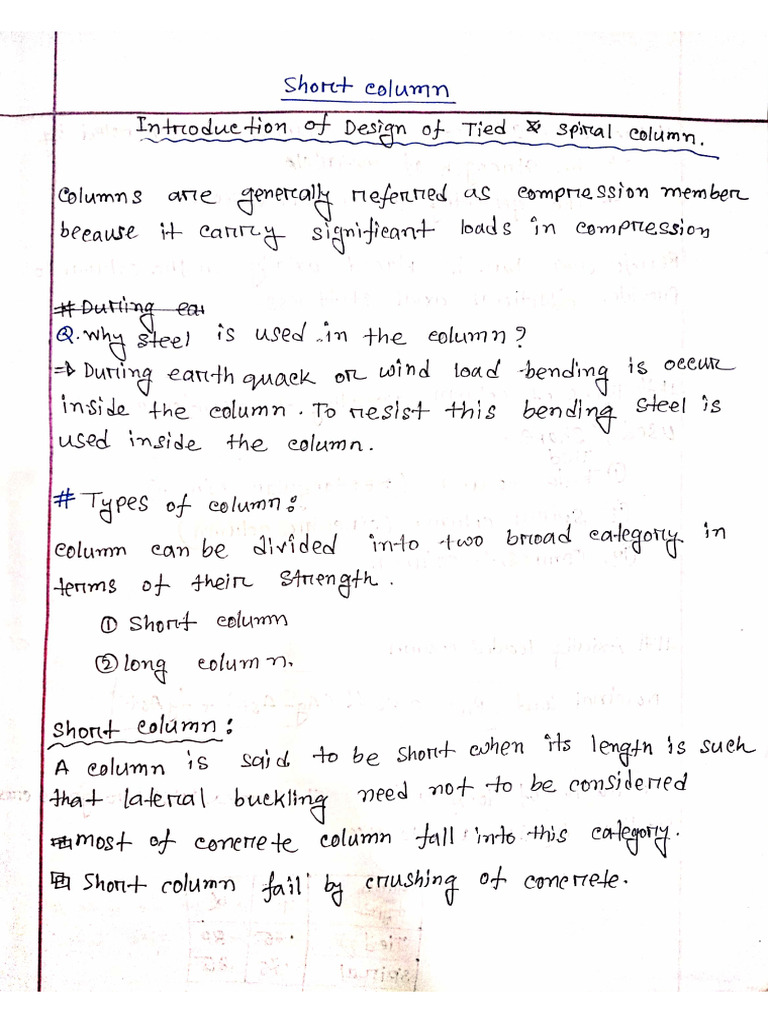 Short column
Introduction of Design of Tied & spiral column.
Columns are generally referred as compression member
because it carry significant loads in compression
# During ea
Q. Why steel is used in the column?
⇒ During earth quack or wind load bending is occur
inside the column. To resist this bending steel is
used inside the column.
# Types of column:
column can be divided into two broad category in
terms of their strength.
① Short column
② long column.
Short column:
A column is said to be short when its length is such
that lateral buckling need not to be considered
most of concrete column fall into this category.
Short column fail by crushing of concrete.